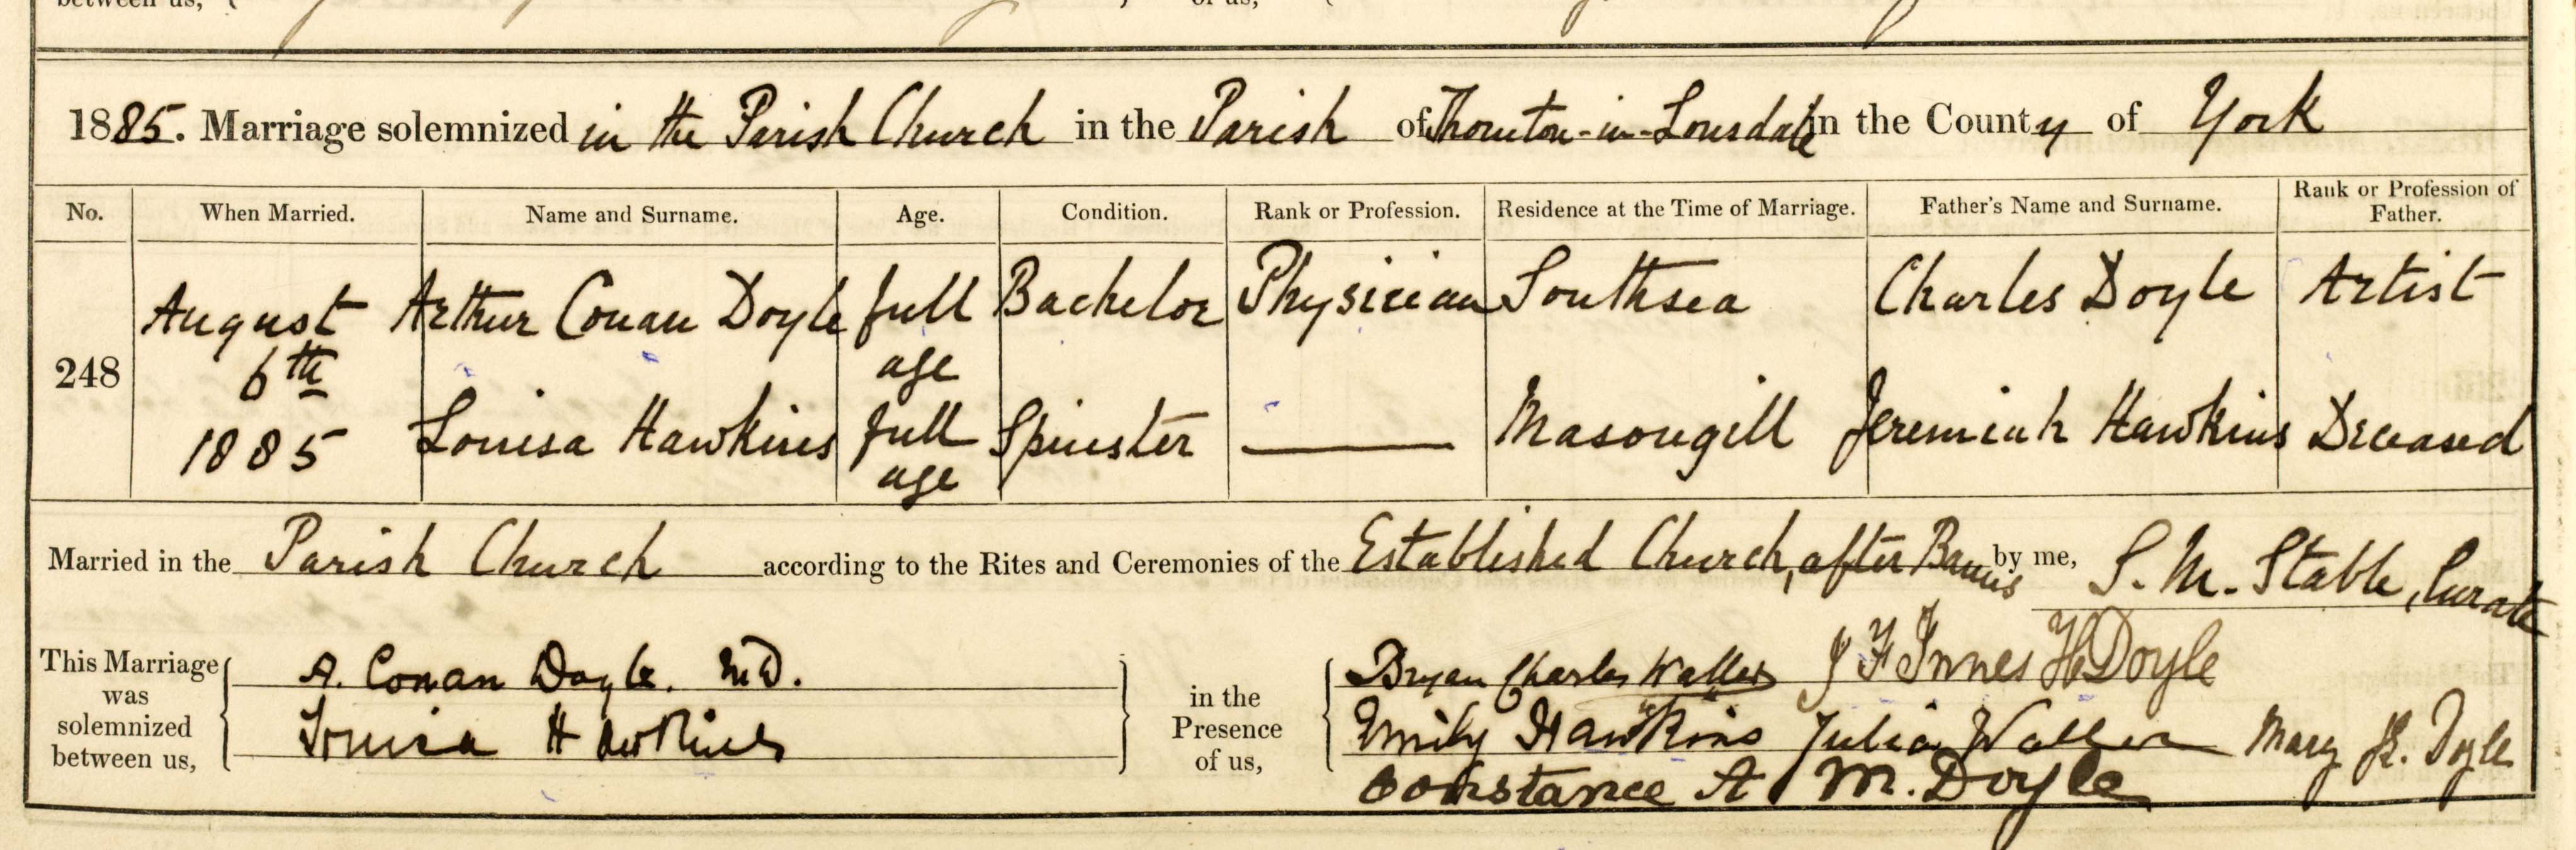 between us,
of us,
1885. Marriage solemnized in the Parish Church in the Parish of Thornton-in-Lonsdale in the County of York
No. When Married. Name and Surname. Age. Condition. Rank or Profession. Residence at the Time of Marriage. Father's Name and Surname. Rank or Profession of Father.
248 August 6th 1885 Arthur Conan Doyle full age Bachelor Physician Southsea Charles Doyle Artist
Louisa Hawkins full age Spinster Masongill Jeremiah Hawkins Deceased
Married in the Parish Church according to the Rites and Ceremonies of the Established Church, after Banns by me, S. M. Stable, Curate
This Marriage was solemnized between us, A. Conan Doyle. M.D.
Louisa Hawkins
in the Presence of us, Bryan Charles Waller J F Innes H Doyle
Emily Hawkins Julia Waller Mary J. E. Doyle
Constance A M. Doyle